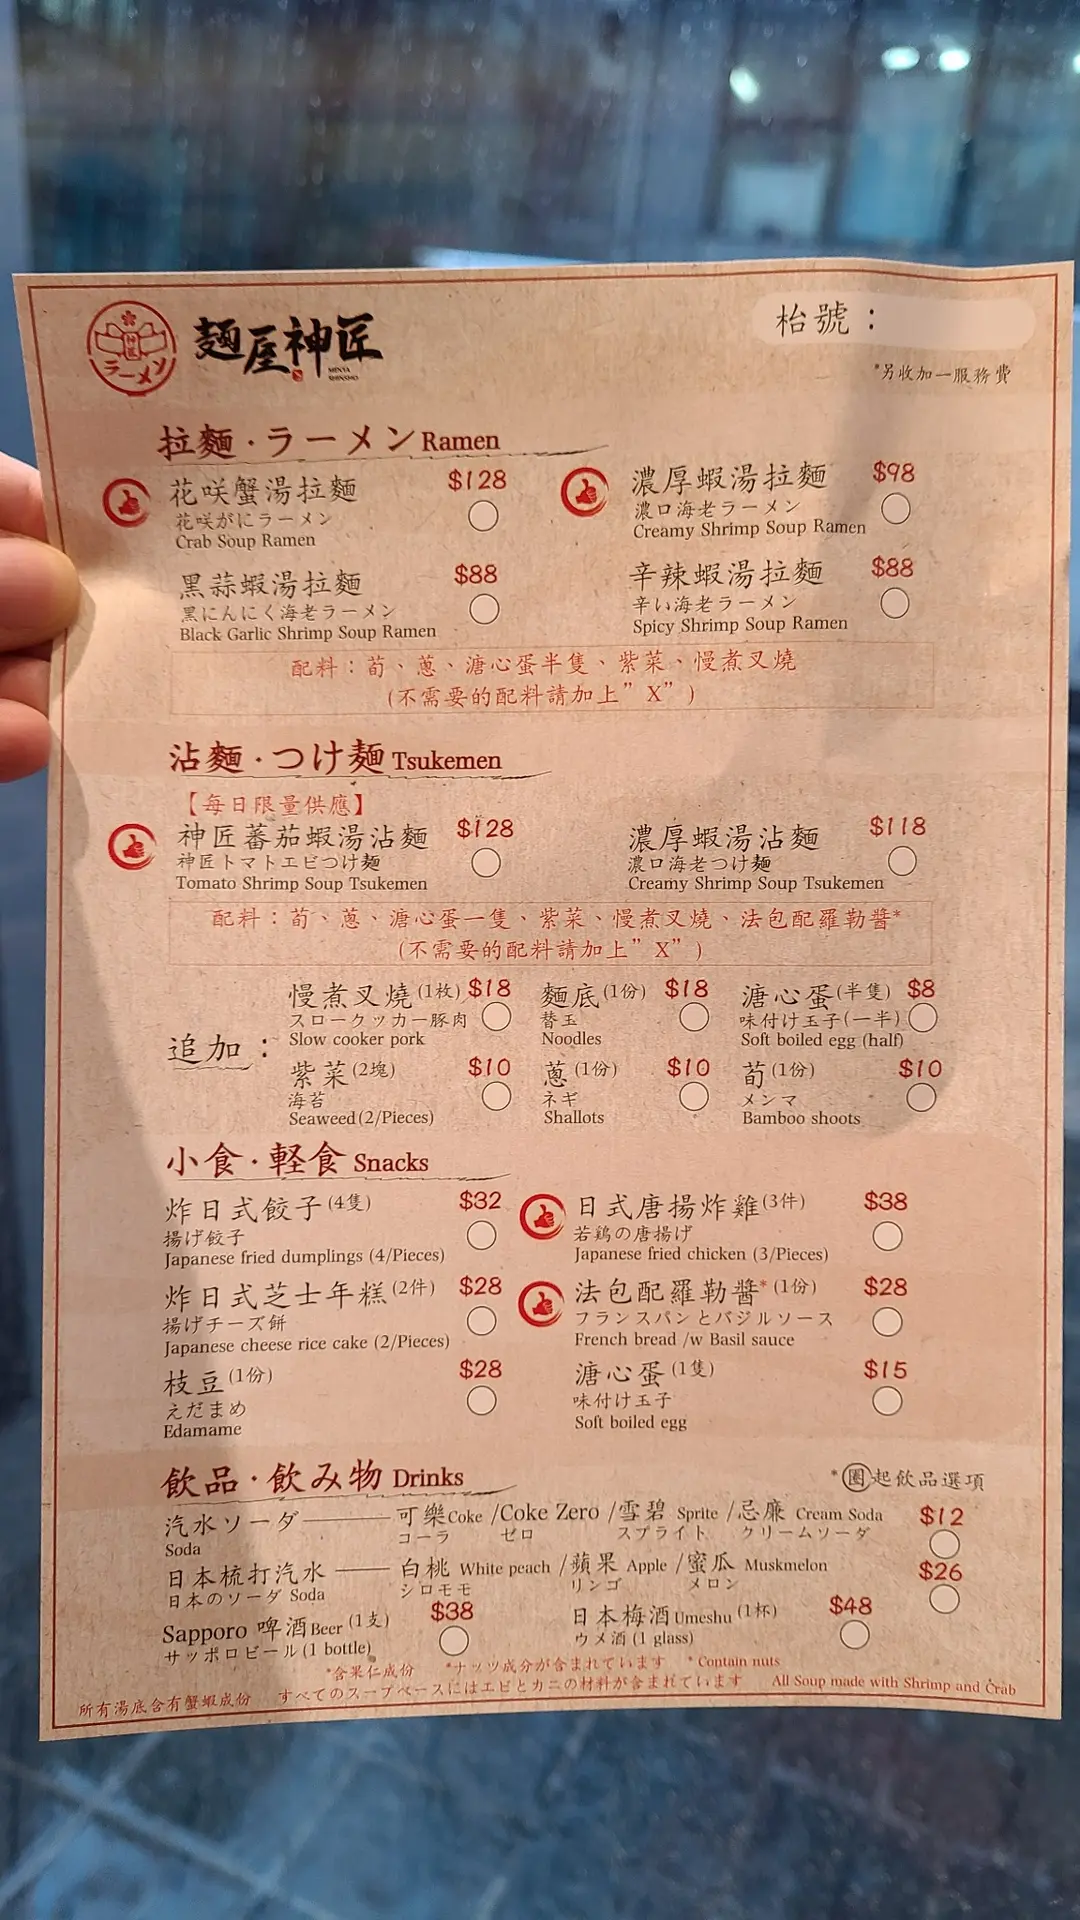 神匠
ラーメン
麵屋神匠
MENYA
SHINSHO
枱號：
*另收加一服務費
拉麵·ラーメン Ramen
花咲蟹湯拉麵 $128
花咲がにラーメン
Crab Soup Ramen
濃厚蝦湯拉麵 $98
濃口海老ラーメン
Creamy Shrimp Soup Ramen
黑蒜蝦湯拉麵 $88
黒にんにく海老ラーメン
Black Garlic Shrimp Soup Ramen
辛辣蝦湯拉麵 $88
辛い海老ラーメン
Spicy Shrimp Soup Ramen
配料：荀、蔥、溏心蛋半隻、紫菜、慢煮叉燒
(不需要的配料請加上”X”)
沾麵·つけ麺 Tsukemen
【每日限量供應】
神匠蕃茄蝦湯沾麵 $128
神匠トマトエビつけ麺
Tomato Shrimp Soup Tsukemen
濃厚蝦湯沾麵 $118
濃口海老つけ麺
Creamy Shrimp Soup Tsukemen
配料：荀、蔥、溏心蛋一隻、紫菜、慢煮叉燒、法包配羅勒醬*
(不需要的配料請加上”X”)
追加：
慢煮叉燒(1枚) $18
スロークッカー豚肉
Slow cooker pork
麵底(1份) $18
替玉
Noodles
溏心蛋(半隻) $8
味付け玉子(一半)
Soft boiled egg (half)
紫菜(2塊) $10
海苔
Seaweed(2/Pieces)
蔥(1份) $10
ネギ
Shallots
荀(1份) $10
メンマ
Bamboo shoots
小食·軽食 Snacks
炸日式餃子(4隻) $32
揚げ餃子
Japanese fried dumplings (4/Pieces)
日式唐揚炸雞(3件) $38
若鶏の唐揚げ
Japanese fried chicken (3/Pieces)
炸日式芝士年糕(2件) $28
揚げチーズ餅
Japanese cheese rice cake (2/Pieces)
法包配羅勒醬*(1份) $28
フランスパンとバジルソース
French bread /w Basil sauce
枝豆(1份) $28
えだまめ
Edamame
溏心蛋(1隻) $15
味付け玉子
Soft boiled egg
飲品·飲み物 Drinks
*圈起飲品選項
汽水ソーダ 可樂Coke /Coke Zero /雪碧 Sprite /忌廉 Cream Soda $12
Soda コーラ ゼロ スプライト クリームソーダ
日本梳打汽水 白桃 White peach /蘋果 Apple /蜜瓜 Muskmelon $26
日本のソーダ Soda シロモモ リンゴ メロン
Sapporo 啤酒Beer(1支) $38
サッポロビール(1 bottle)
日本梅酒Umeshu(1杯) $48
ウメ酒(1 glass)
*含果仁成份 *ナッツ成分が含まれています *Contain nuts
所有湯底含有蟹蝦成份 すべてのスープベースにはエビとカニの材料が含まれています All Soup made with Shrimp and Crab